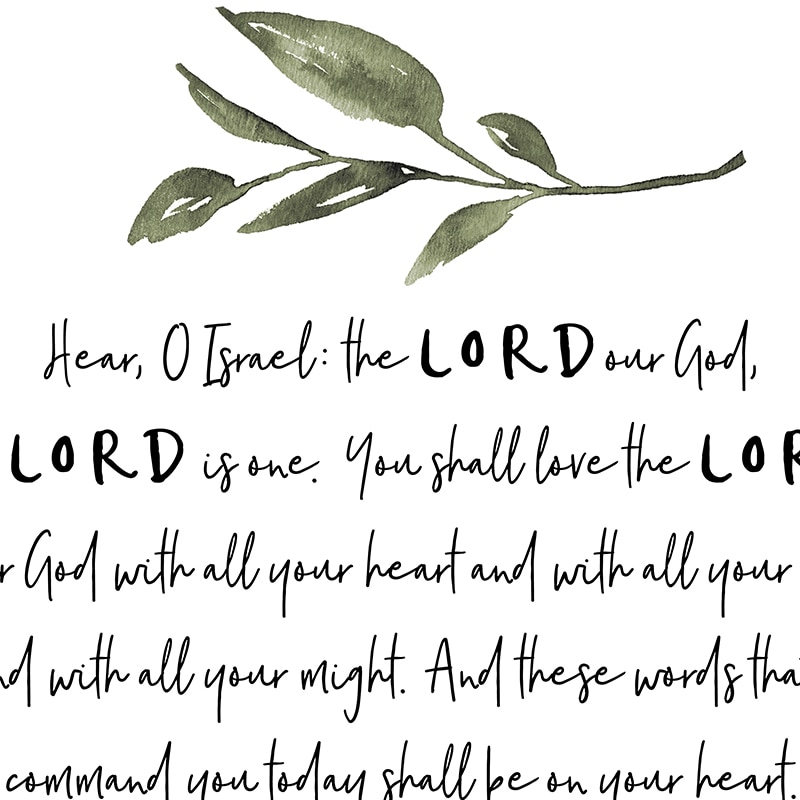 Hear, O Israel: the LORD our God,
LORD is one. You shall love the LOR
r God with all your heart and with all your
nd with all your might. And these words tha
command you today shall be on your heart.